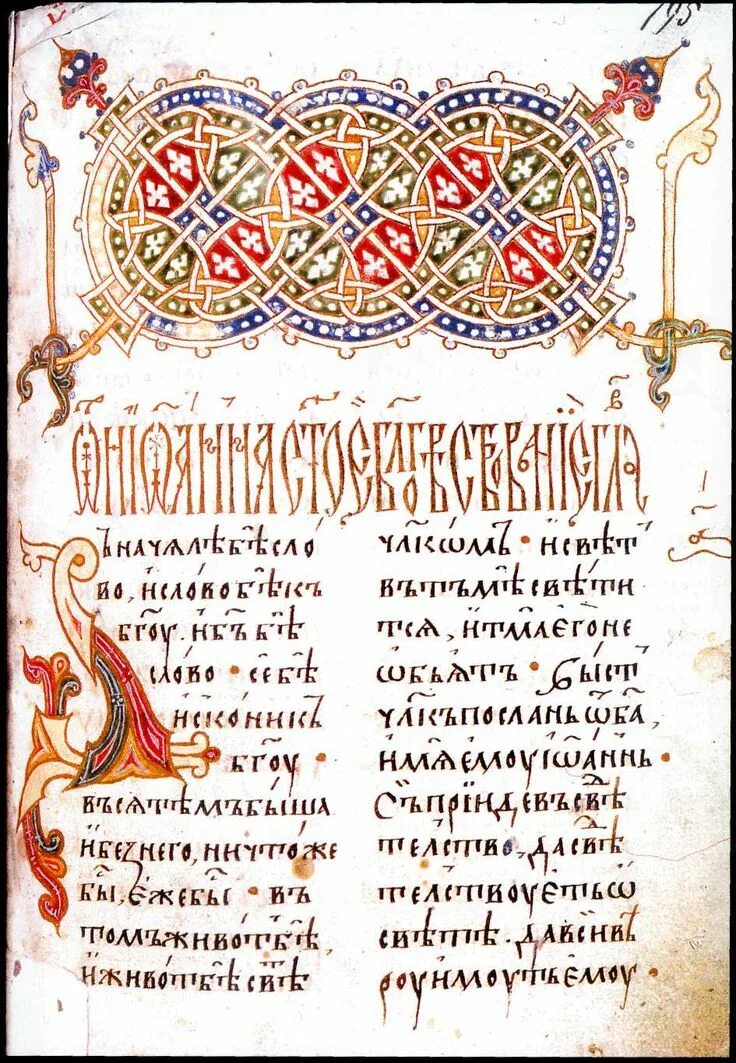 195
Ѿ ІѠАННА СТОЕ БЛГОВѢСТВОВАНІЕ ГЛА
Ъ НАЧАЛѢ БѢ СЛО
ВО, И СЛОВО БѢ КЪ
БГОУ. И БЪ БѢ
СЛОВО · СЕ БѢ
ИСКОНИ КЪ
БГОУ ·
ВЪСЯ ТѢМЪ БЫША
И БЕZ НЕГО, НИЧТОЖЕ
БЫ, ЕЖЕ БЫ · ВЪ
ТОМЪ ЖИВОТЪ БѢ,
И ЖИВОТ БѢ СВѢ
ЧЛКѠМЪ · И СВѢТ
ВЪ ТЪМѢ СВѢТИ
ТСЯ, И ТМА ЕГО НЕ
ѠБЬЯТЪ · БЫСТ
ЧЛКЪ ПОСЛАНЬ Ѿ БА,
ИМЯ ЕМОУ ІѠАННЬ ·
СЪ ПРІИДЕ ВЪ СВѢ
ТЕЛСТВО, ДА СВѢ
ТЕЛСТВОУЕТЬ Ѡ
СВѢТѢ. ДА ВСИ ВѢ
РОУ ИМОУТЬ ЕМОУ ·